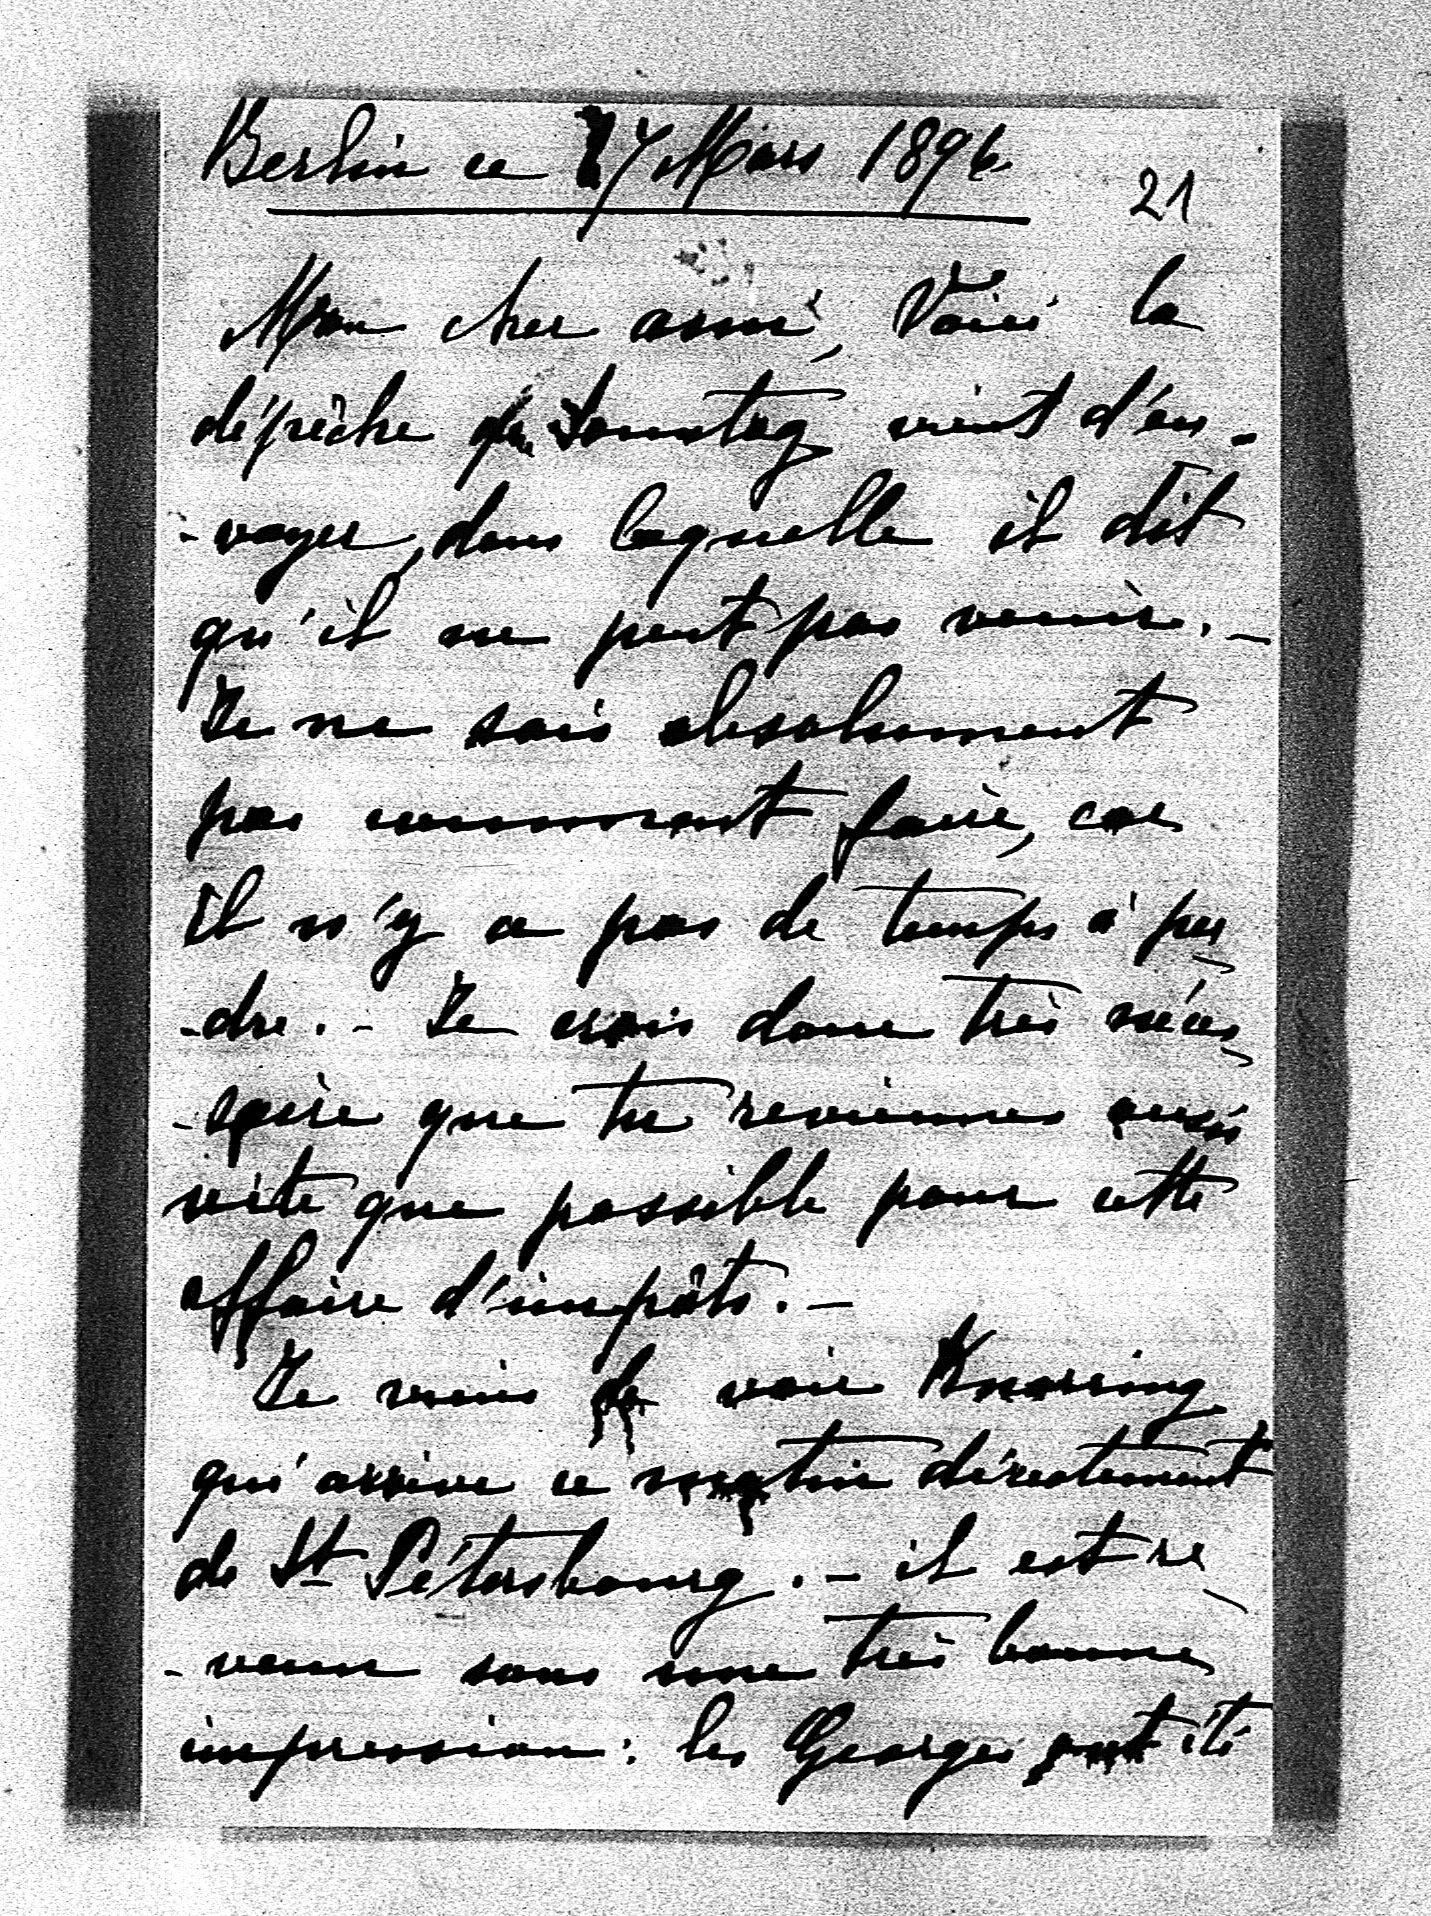 Berlin ce 17 Mars 1896.
21
Mon cher ami, Voici la
dépêche que Sonntag vient d'en-
-voyer, dans laquelle il dit
qu'il ne peut pas venir. —
Je ne sais absolument
pas comment faire, car
il n'y a pas de temps à per
-dre. — Je crois donc très néces
-saire que tu reviennes aussi
vite que possible pour cette
affaire d'impôts. —
Je viens de voir Knorring
qui arrive ce matin directement
de St Pétersbourg. — il est re
-venu sous une très bonne
impression : les Georges ont été